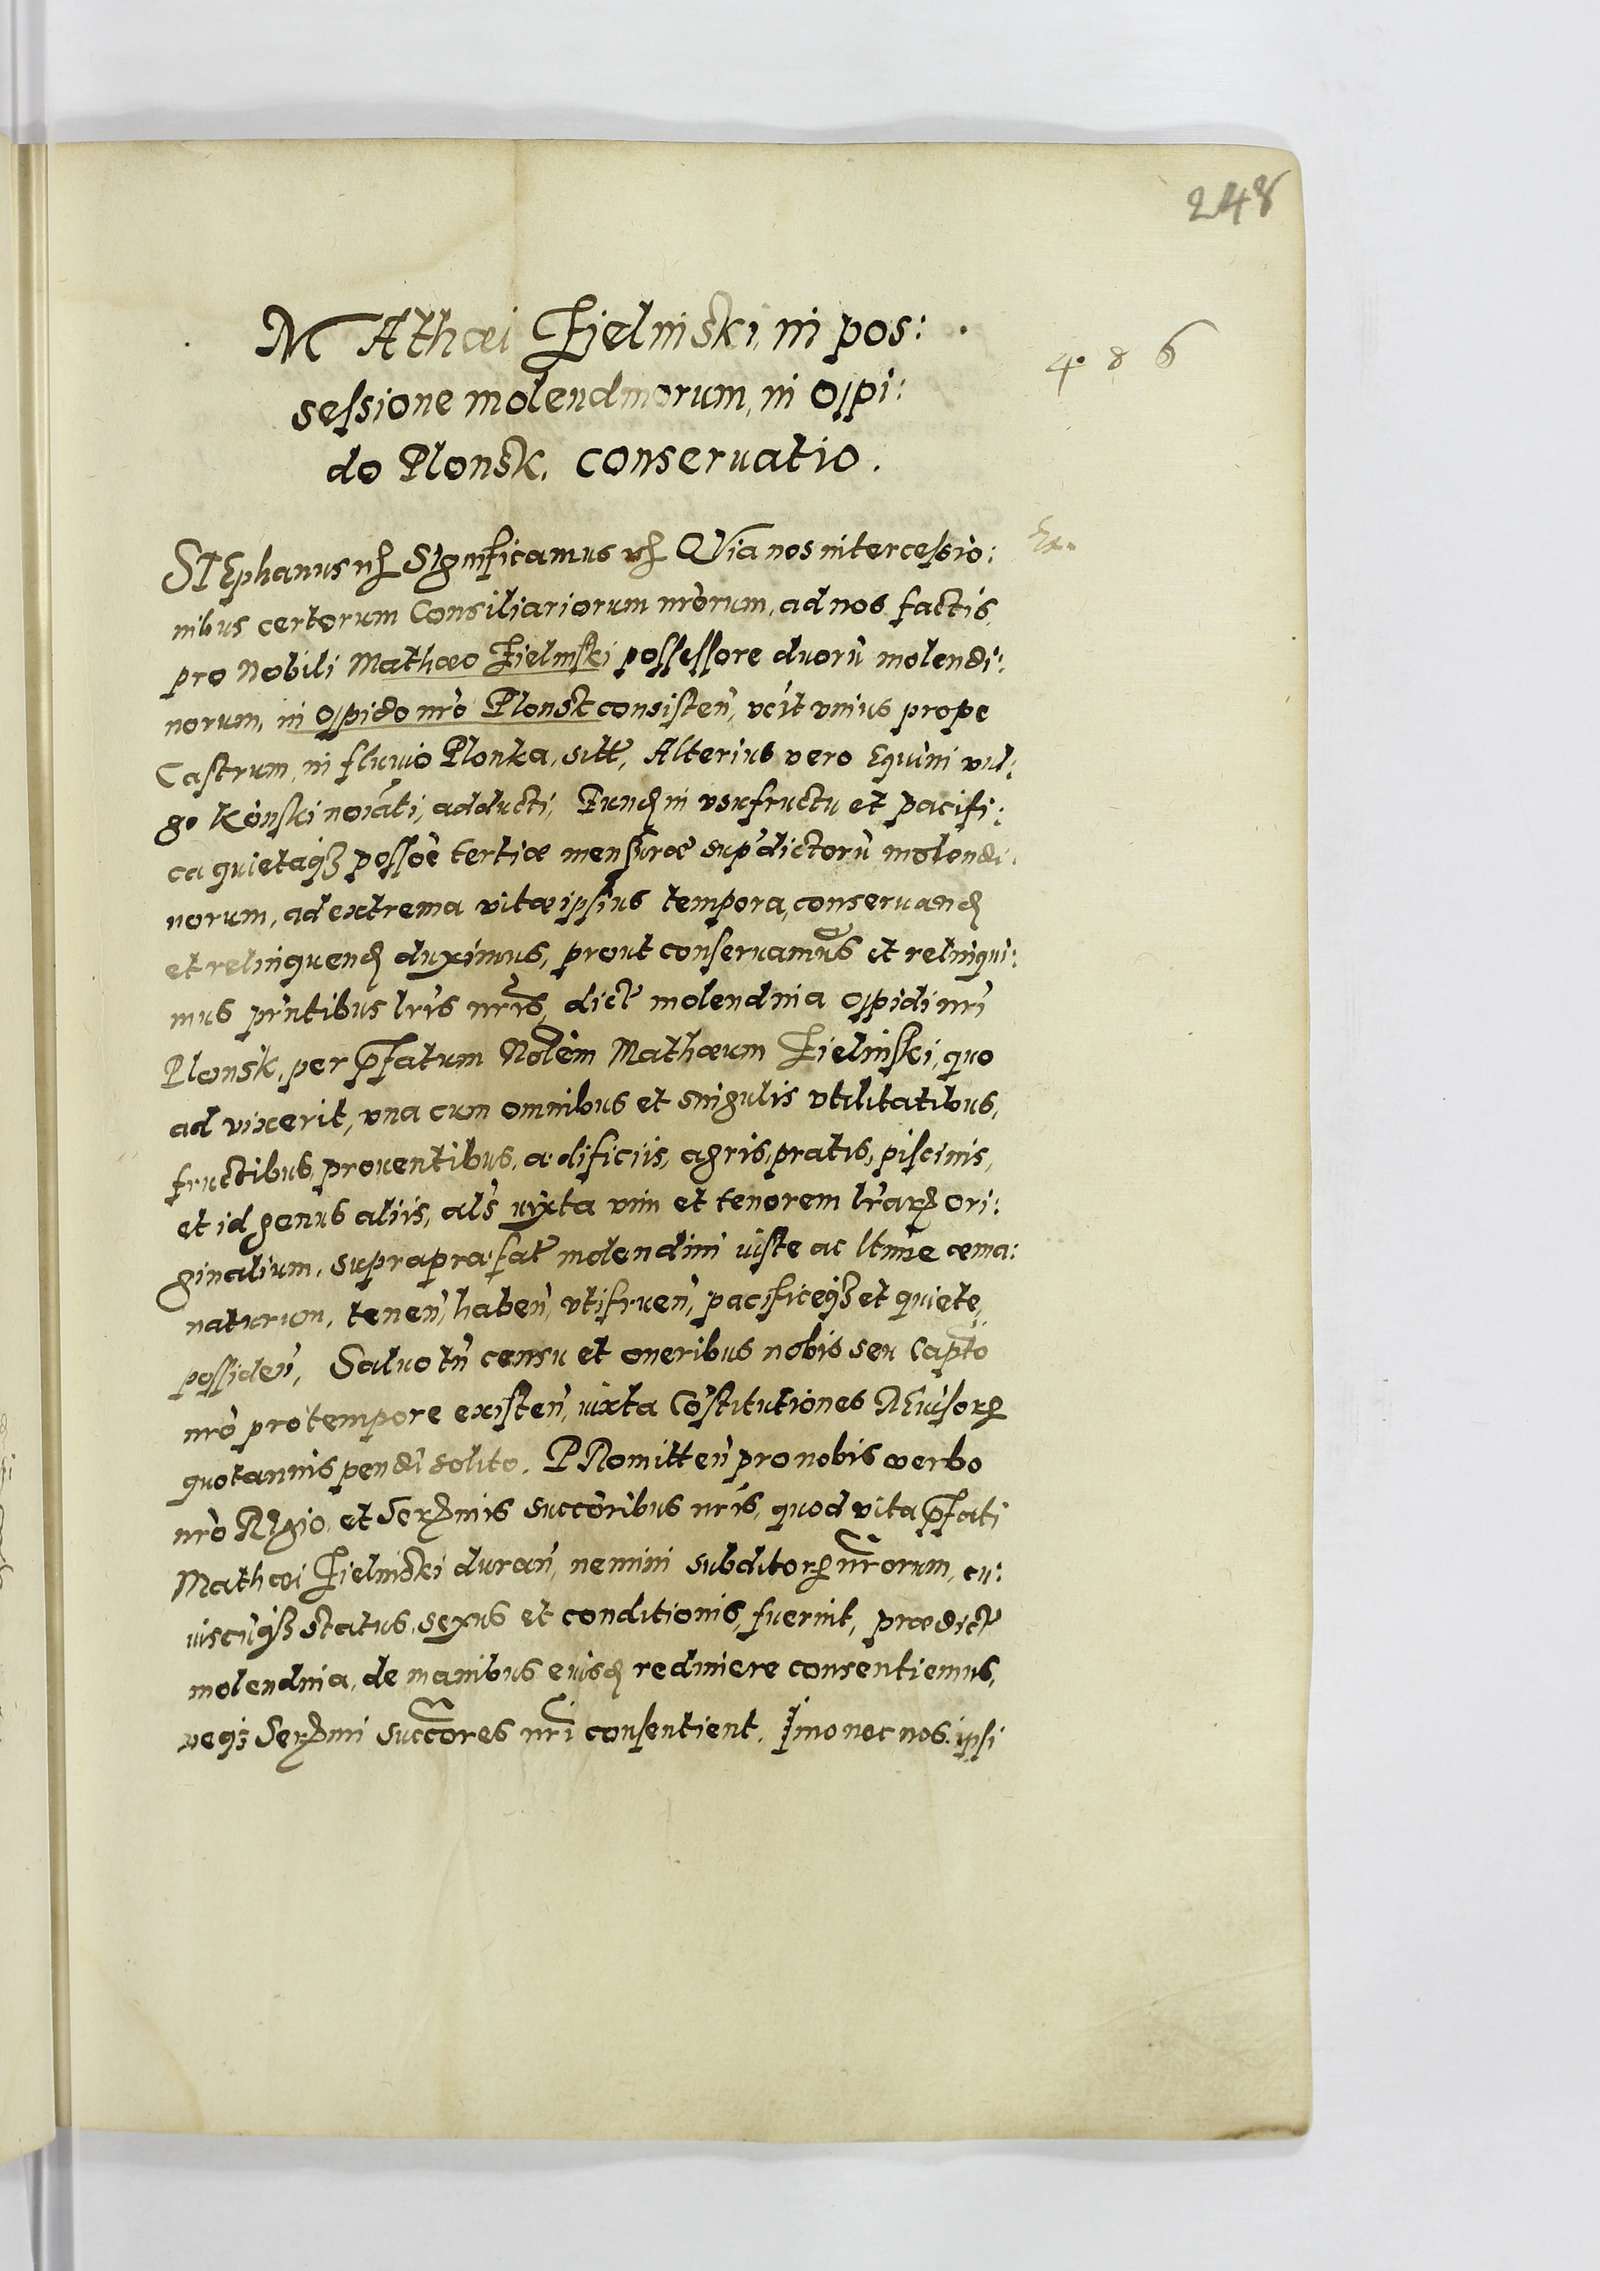 248
MAthæi Zielinski, in pos:
486
sessione molendinorum, in Oppi:
do Plonsk. conseruatio.
STEphanus rc̃ Significamus rc̃ QVia nos intercessio:
nibus certorum Consiliariorum nr̃orum, ad nos factis,
pro Nobili Mathæo Zielinski possessore duorũ molendi:
norum, in Oppido nr̃o Plonsk consisteñ, vc̃it vnius prope
Castrum, in fluuio Plonka, sitt̃, Alterius vero Equini vul:
go Konski noĩati, adducti, Eund̃ in vsufructu et pacifi:
ca quietaqꝫ possõe tertiæ mensuræ sup̃dictorũ molendi:
norum, ad extrema vitæ ipsius tempora, conseruand̃
et relinquend̃ duximus, prout conseruamus et relinqui:
mus pr̃ntibus lr̃is nr̃is, dict̃ molendina oppidi nr̃i
Plonsk, per p̃fatum Nob̃lem Mathæum Zielinski, quo
ad vixerit, vna cum omnibus et singulis vtilitatibus,
fructibus, prouentibus, ædificiis, agris, pratis, piscinis,
et id genus aliis, al̃s iuxta vim et tenorem lr̃arꝝ ori:
ginalium, supra præfat̃ molendini iuste ac ltime ema:
naturum, teneñ, habeñ, vtifrueñ, pacificeqꝫ et quiete,
possideñ, Saluo tñ censu et oneribus nobis seu Capt̃o
nr̃o pro tempore existeñ, iuxta Cõstitutiones REuisorꝝ
quotannis pendi solito. PRomitteñ pro nobis verbo
nr̃o REgio, et Serꝝmis succõribus nr̃is, quod vita p̃fati
Mathæi Zielinski durañ, nemini subditorꝝ nr̃orum, cu:
iuscũqꝫ status, sexus et conditionis, fuerint, prædict̃
molendina, de manibus eiusd̃ redimere consentiemus,
neqꝫ Serꝝmi succõres nr̃i consentient. Imo nec nos ipsi